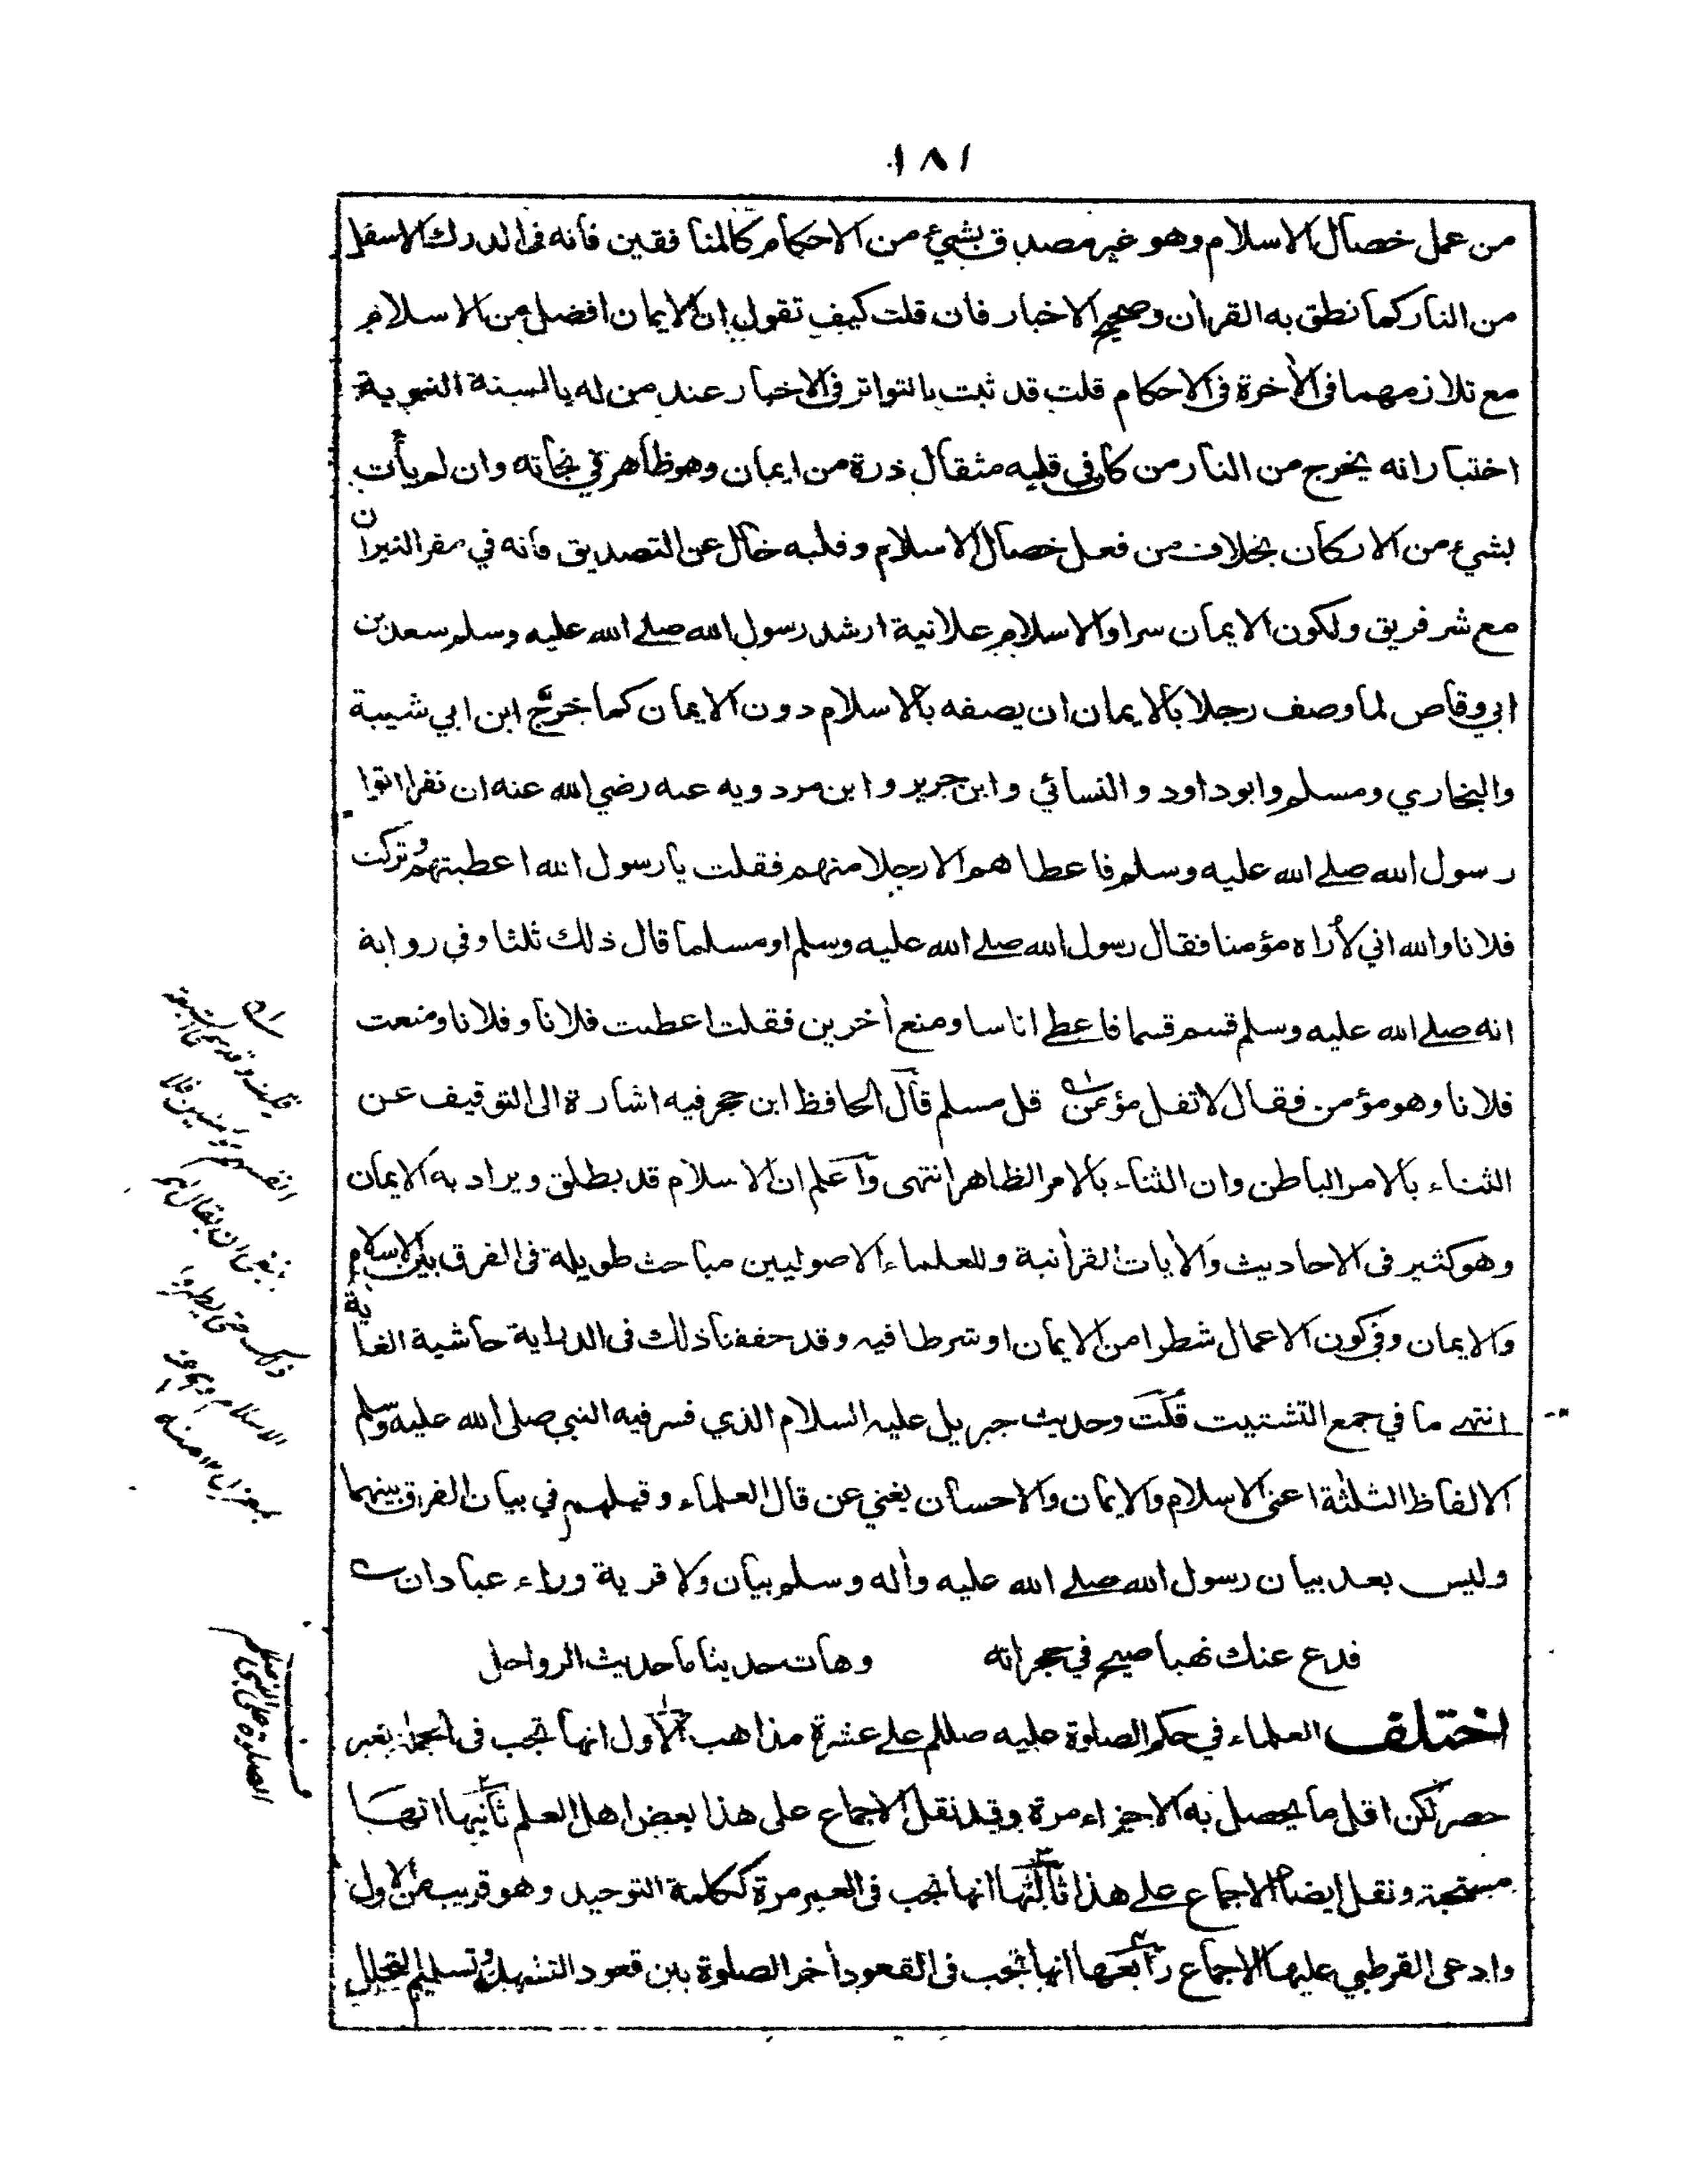 ١٨١
من عمل خصال الاسلام وهو غير مصدق بشيء من الاحكام كالمنافقين فانه فى الدرك الاسفل
من النار كما نطق به القرآن وصحيح الاخبار فان قلت كيف تقول ان الايمان افضل من الاسلام
مع تلازمهما فى الأخرة فى الاحكام قلت قد ثبت بالتواتر فى الاخبار عند من له بالسنة النبوية
اختبار انه يخرج من النار من كان فى قلبه مثقال ذرة من ايمان وهو ظاهر في نجاته وان لم يأت
بشيء من الاركان بخلاف من فعل خصال الاسلام وقلبه خال عن التصديق فانه في مقر النيران
مع شر فريق ولكون الايمان سرا والاسلام علانية ارشد رسول الله صلے الله عليه وسلم سعد بن
ابي وقاص لما وصف رجلا بالايمان ان يصفه بالاسلام دون الايمان كما خرّج ابن ابي شيبة
والبخاري ومسلم وابو داود والنسائي وابن جرير وابن مردويه عنه رضي الله عنه ان نفرا اتوا
رسول الله صلے الله عليه وسلم فاعطاهم الا رجلا منهم فقلت يا رسول الله اعطيتهم وتركت
فلانا والله اني لأراه مؤمنا فقال رسول الله صلے الله عليه وسلم او مسلما قال ذلك ثلثا وفي رواية
انه صلے الله عليه وسلم قسم قسما فاعطے اناسا ومنع أخرين فقلت اعطيت فلانا وفلانا ومنعت
فلانا وهو مؤمن فقال لا تقل مؤمن قل مسلم قال الحافظ ابن حجر فيه اشارة الى التوقيف عن
الثناء بالامر الباطن وان الثناء بالامر الظاهر انتهى واعلم ان الاسلام قد يطلق ويراد به الايمان
وهو كثير فى الاحاديث والأيات القرأنية وللعلماء الاصوليين مباحث طويلة فى الفرق بين الاسلام
والايمان وفي كون الاعمال شطرا من الايمان او شرطا فيه وقد حققنا ذلك فى الدراية حاشية الغاية
انتهے ما في جمع التشتيت قلت وحديث جبريل عليه السلام الذي فسر فيه النبي صلى الله عليه وسلم
الالفاظ الثلثة اعنى الاسلام والايمان والاحسان يغني عن قال العلماء وقيلهم في بيان الفرق بينهما
وليس بعد بيان رسول الله صلے الله عليه وأله وسلم بيان ولا قرية وراء عبادان
فدع عنك نهبا صيح في حجراته وهات حديثا ما حديث الرواحل
اختلف العلماء في حكم الصلوة عليه صللم علے عشرة مذاهب الاول انها تجب فى الجملة بغير
حصر لكن اقل ما يحصل به الاجزاء مرة وقد نقل الاجماع على هذا بعض اهل العلم ثانيها انها
مستحبة ونقل ايضا الاجماع علے هذا ثالثها انها تجب فى العمر مرة ككلمة التوحيد وهو قريب من الاول
وادعى القرطبي عليها الاجماع رابعها انها تجب فى القعود أخر الصلوة بين قعود التشهد وتسليم التحلل